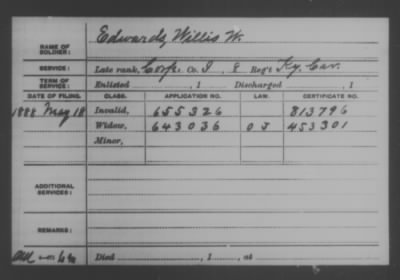 NAME OF SOLDIER: Edwards, Willis W.
SERVICE: Late rank, Corp. Co. I, 8 Reg't Ky. Cav.
TERM OF SERVICE: Enlisted , 1 Discharged , 1
DATE OF FILING. CLASS. APPLICATION NO. LAW. CERTIFICATE NO.
1888 May 18 Invalid, 655326 813796
Widow, 643036 453301
Minor,
ADDITIONAL SERVICES:
REMARKS:
Died , 1 , at